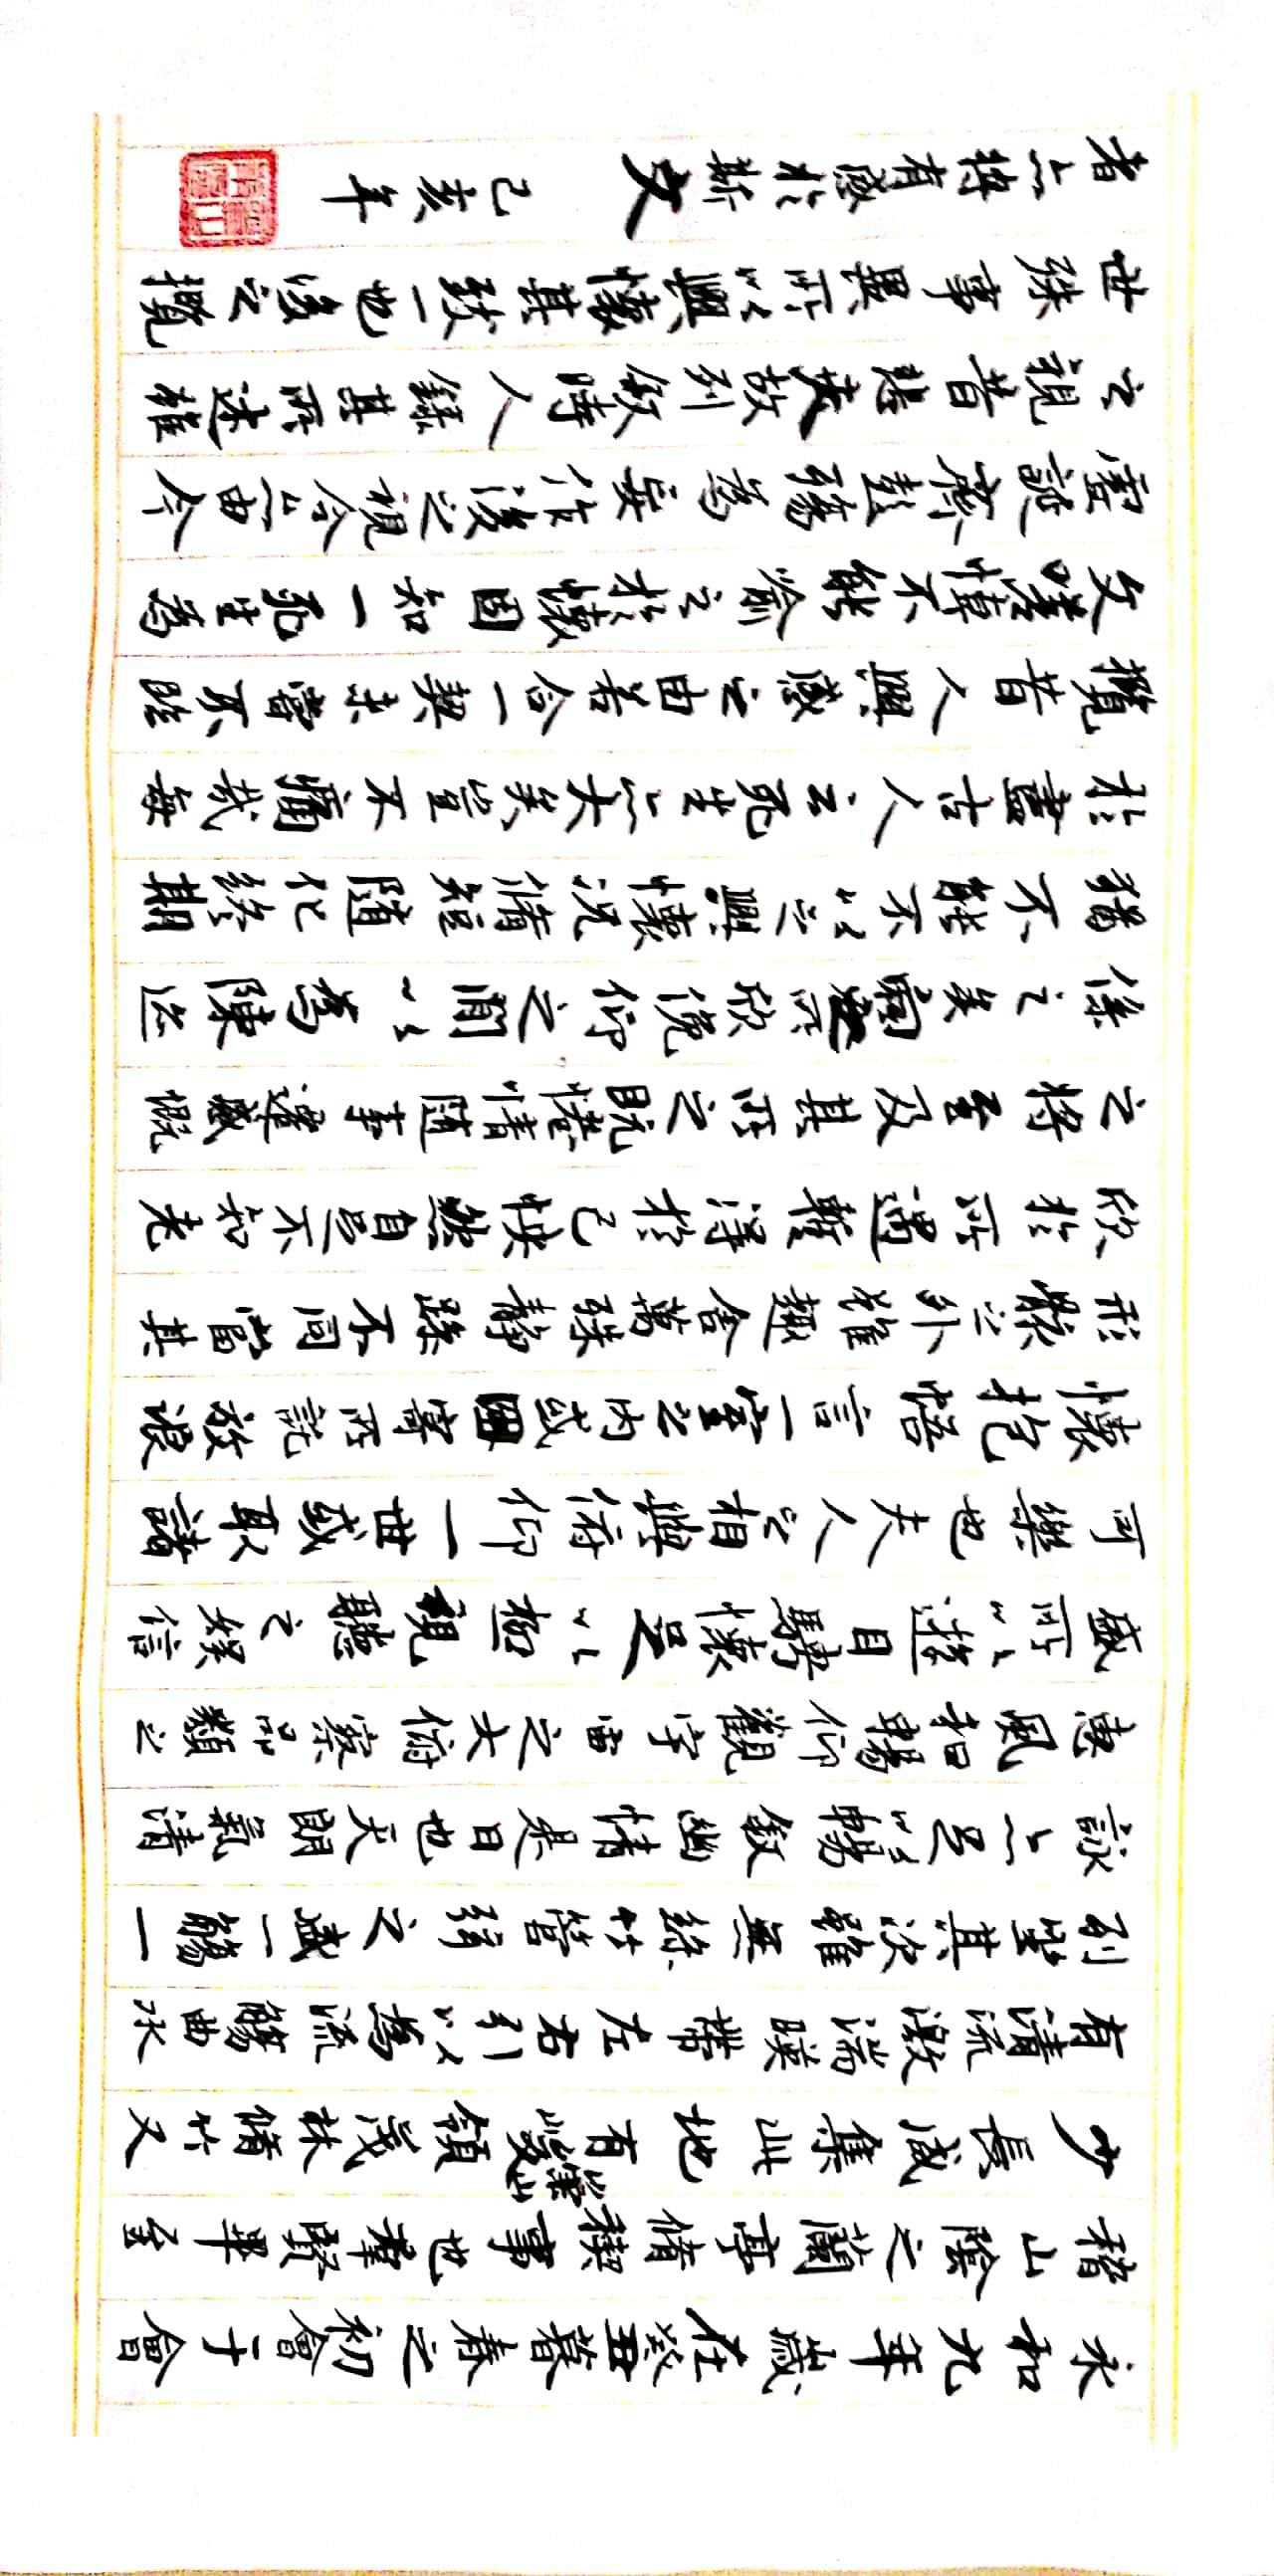 永和九年歲在癸丑暮春之初會于會
稽山陰之蘭亭脩禊事也羣賢畢至
少長咸集此地有崇山峻領茂林脩竹又
有清流激湍暎帶左右引以為流觴曲水
列坐其次雖無絲竹管弦之盛一觴一
詠亦足以暢敘幽情是日也天朗氣清
惠風和暢仰觀宇宙之大俯察品類之
盛所以遊目騁懷足以極視聽之娛信
可樂也夫人之相與俯仰一世或取諸
懷抱悟言一室之內或因寄所託放浪
形骸之外雖趣舍萬殊靜躁不同當其
欣於所遇暫得於己快然自足不知老
之將至及其所之既惓情隨事遷感慨
係之矣向之所欣俛仰之閒以為陳迹
猶不能不以之興懷況脩短隨化終期
於盡古人云死生亦大矣豈不痛哉每
攬昔人興感之由若合一契未嘗不臨
文嗟悼不能喻之於懷固知一死生為
虛誕齊彭殤為妄作後之視今亦由今
之視昔悲夫故列敘時人錄其所述雖
世殊事異所以興懷其致一也後之攬
者亦將有感於斯文 己亥年